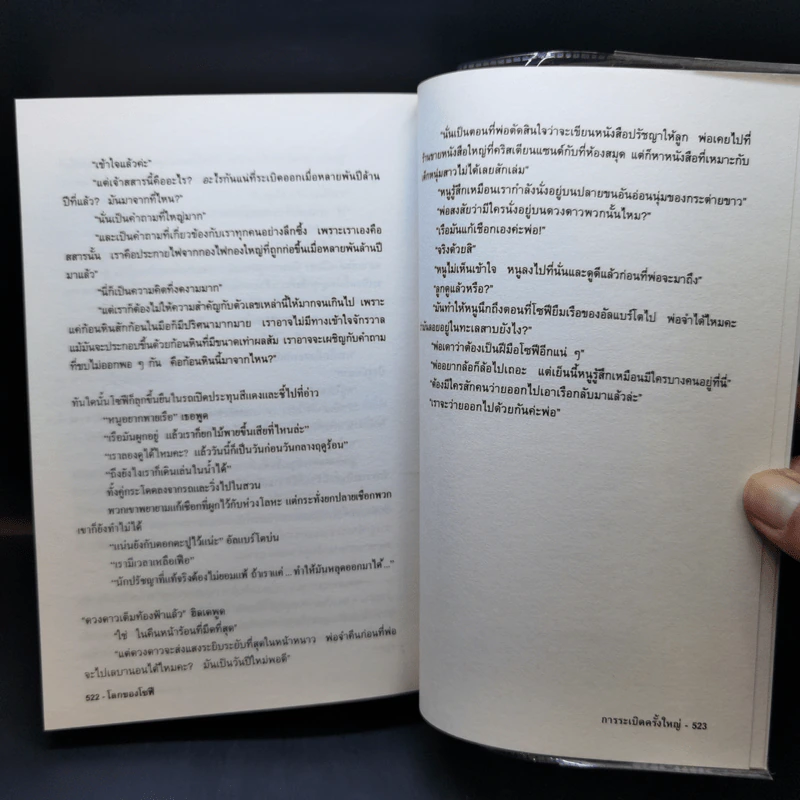 "เข้าใจแล้วค่ะ"
"แต่เจ้าสสารนี้คืออะไร? อะไรกันแน่ที่ระเบิดออกเมื่อหลายพันปีล้าน
ปีที่แล้ว? มันมาจากที่ไหน?"
"นั่นเป็นคำถามที่ใหญ่มาก"
"และเป็นคำถามที่เกี่ยวข้องกับเราทุกคนอย่างลึกซึ้ง เพราะเราเองคือ
สสารนั้น เราคือประกายไฟจากกองไฟกองใหญ่ที่ถูกก่อขึ้นเมื่อหลายพันล้านปี
มาแล้ว"
"นี่ก็เป็นความคิดที่งดงามมาก"
"แต่เราก็ต้องไม่ให้ความสำคัญกับตัวเลขเหล่านี้ให้มากจนเกินไป เพราะ
แค่ก้อนหินสักก้อนในมือก็มีปริศนามากมาย เราอาจไม่มีทางเข้าใจจักรวาล
แม้มันจะประกอบขึ้นด้วยก้อนหินที่มีขนาดเท่าผลส้ม เราอาจจะเผชิญกับคำถาม
ที่ขบไม่ออกพอ ๆ กัน คือก้อนหินนี้มาจากไหน?"
ทันใดนั้นโซฟีก็ลุกขึ้นยืนในรถเปิดประทุนสีแดงและชี้ไปที่อ่าว
"หนูอยากพายเรือ" เธอพูด
"เรือมันผูกอยู่ แล้วเราก็ยกไม้พายขึ้นเสียที่ไหนล่ะ"
"เราลองดูได้ไหมคะ? แล้ววันนี้ก็เป็นวันก่อนวันกลางฤดูร้อน"
"ถึงยังไงเราก็เดินเล่นในน้ำได้"
ทั้งคู่กระโดดลงจากรถและวิ่งไปในสวน
พวกเขาพยายามแก้เชือกที่ผูกไว้กับห่วงโลหะ แต่กระทั่งยกปลายเชือกพวก
เขาก็ยังทำไม่ได้
"แน่นยังกับตอกตะปูไว้แน่ะ" อัลแบร์โตบ่น
"เรามีเวลาเหลือเฟือ"
"นักปรัชญาที่แท้จริงต้องไม่ยอมแพ้ ถ้าเราแค่...ทำให้มันหลุดออกมาได้..."
"ดวงดาวเต็มท้องฟ้าแล้ว" ฮิลเดพูด
"ใช่ ในคืนหน้าร้อนที่มืดที่สุด"
"แต่ดวงดาวจะส่งแสงระยิบระยับที่สุดในหน้าหนาว พ่อจำคืนก่อนที่พ่อ
จะไปเลบานอนได้ไหมคะ? มันเป็นวันปีใหม่พอดี"
522 - โลกของโซฟี
"นั่นเป็นตอนที่พ่อตัดสินใจว่าจะเขียนหนังสือปรัชญาให้ลูก พ่อเคยไปที่
ร้านขายหนังสือใหญ่ที่คริสเตียนแซนด์กับที่ห้องสมุด แต่ก็หาหนังสือที่เหมาะกับ
เด็กหนุ่มสาวไม่ได้เลยสักเล่ม"
"หนูรู้สึกเหมือนเรากำลังนั่งอยู่บนปลายขนอันอ่อนนุ่มของกระต่ายขาว"
"พ่อสงสัยว่ามีใครนั่งอยู่บนดวงดาวพวกนั้นไหม?"
"เรือมันแก้เชือกเองค่ะพ่อ!"
"จริงด้วยสิ"
"หนูไม่เห็นเข้าใจ หนูลงไปที่นั่นและดูดีแล้วก่อนที่พ่อจะมาถึง"
"ลูกดูแล้วหรือ?"
"มันทำให้หนูนึกถึงตอนที่โซฟียืมเรือของอัลแบร์โตไป พ่อจำได้ไหมคะ
ว่ามันลอยอยู่ในทะเลสาบยังไง?"
"พ่อเดาว่าต้องเป็นฝีมือโซฟีอีกแน่ ๆ"
"พ่ออยากล้อก็ล้อไปเถอะ แต่เย็นนี้หนูรู้สึกเหมือนมีใครบางคนอยู่ที่นี่"
"ต้องมีใครสักคนว่ายออกไปเอาเรือกลับมาแล้วล่ะ"
"เราจะว่ายออกไปด้วยกันค่ะพ่อ"
การระเบิดครั้งใหญ่ - 523